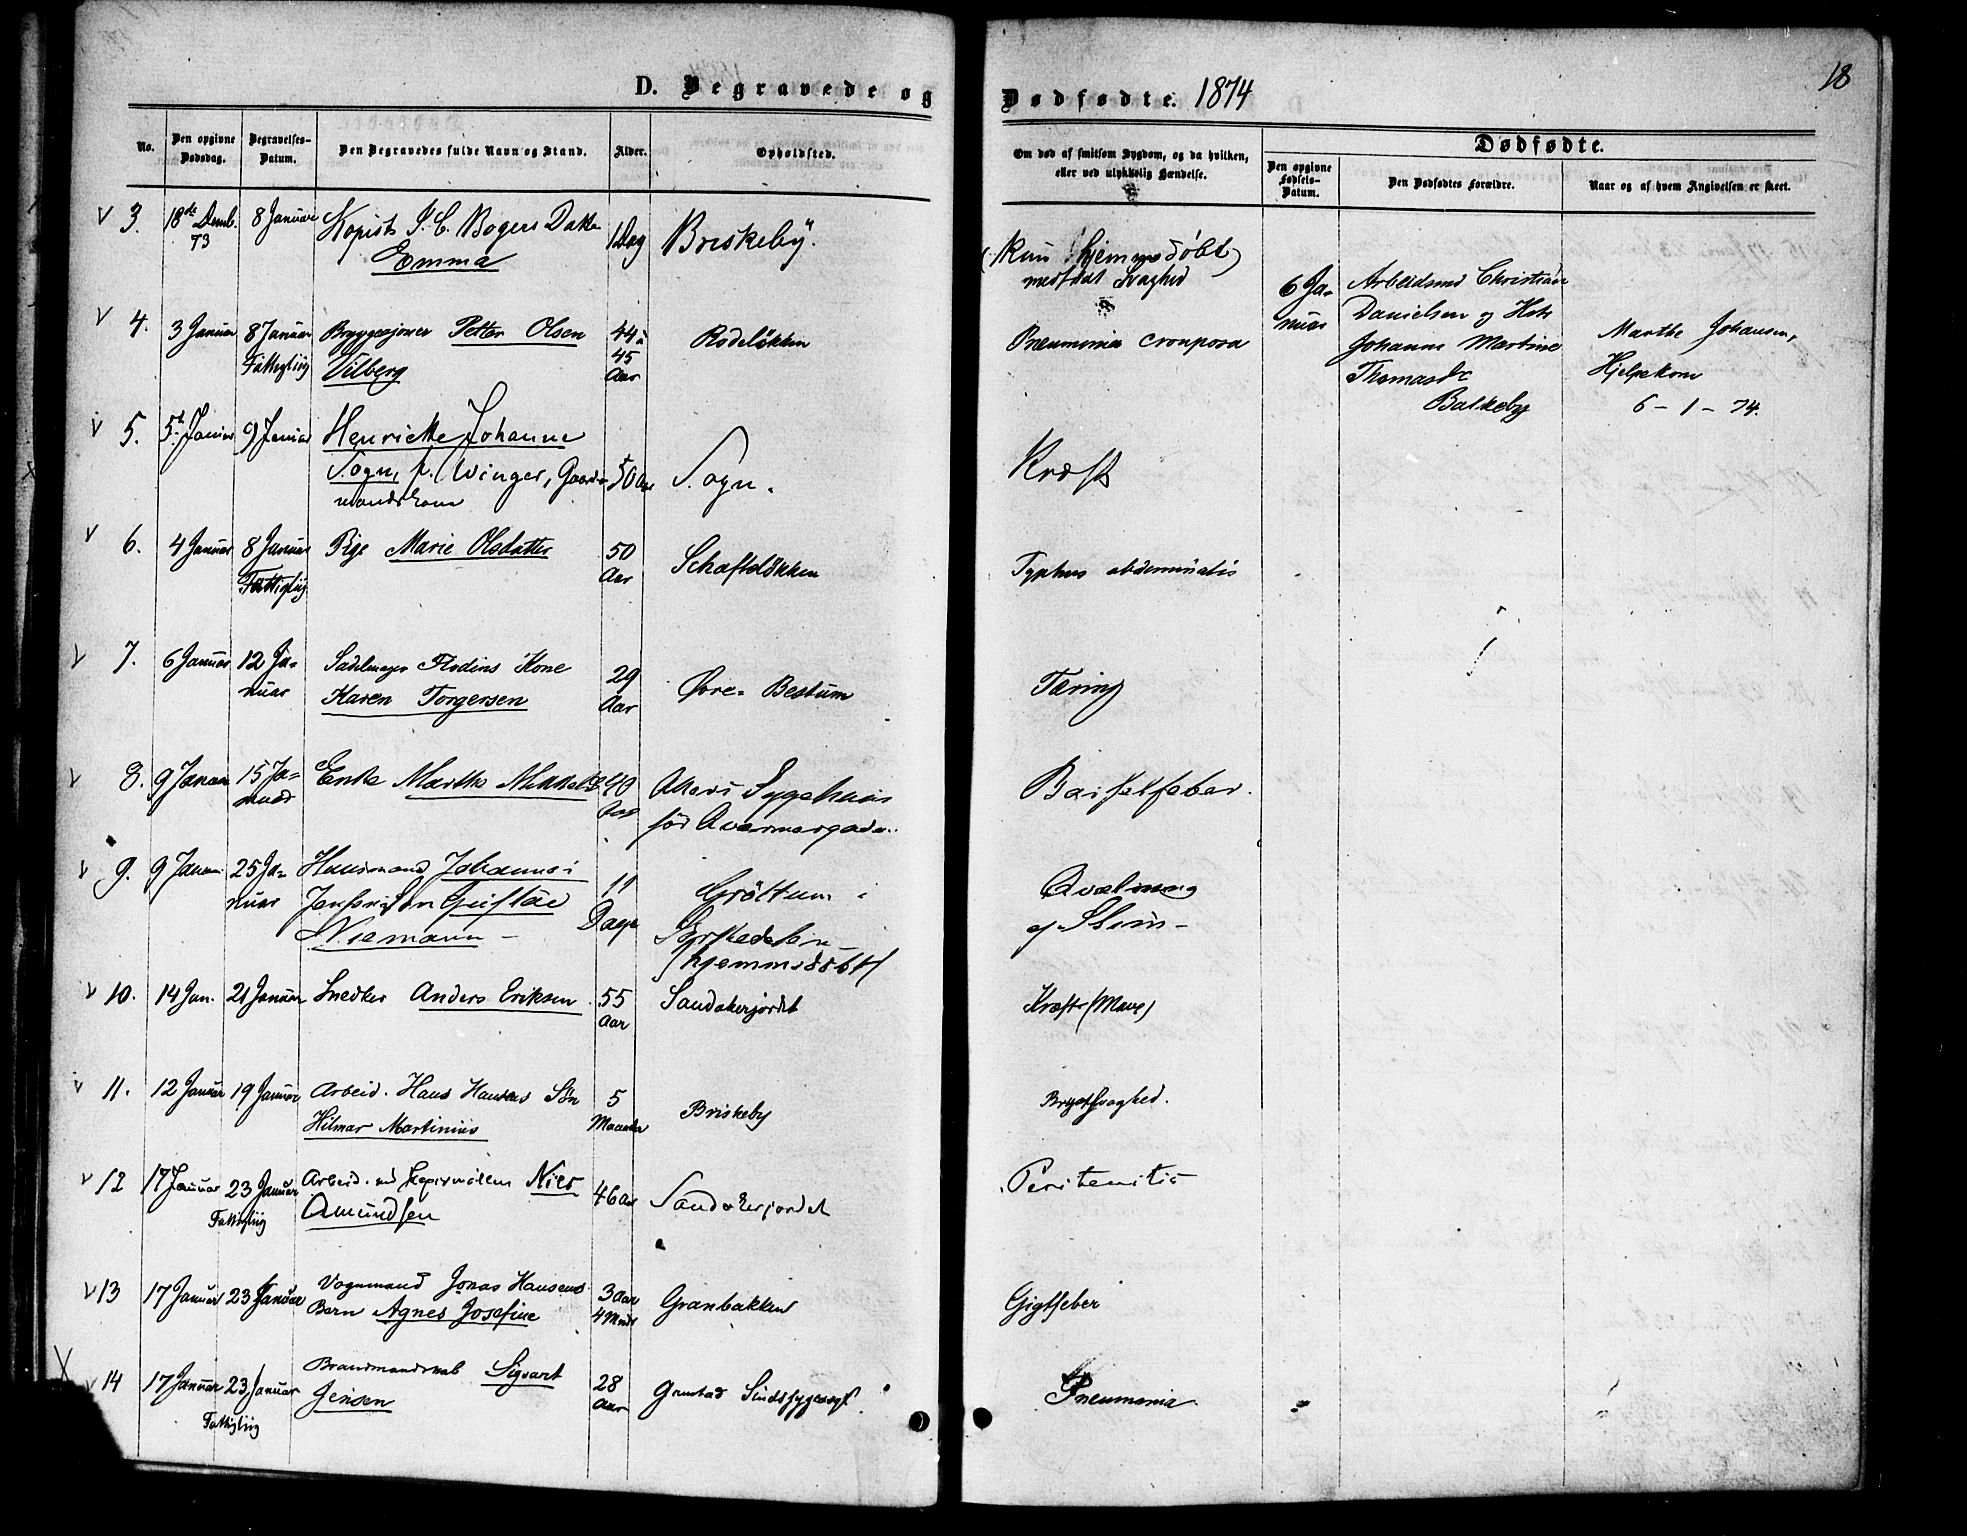 D. Begravede og
Dødfødte. 1874
18
No.
Den opgivne Dødsdag.
Begravelses-Datum.
Den Begravedes fulde Navn og Stand.
Alder.
Opholdsted.
Om død af smitsom Sygdom, og da hvilken, eller ved ulykkelig Hændelse.
Dødfødte.
Den opgivne Fødsels-Datum.
Den Dødfødtes Forældre.
Naar og af hvem Angivelsen er skeet.
3. 18de Decemb. 8 Januar Kopist J. C. Bogers Datter 1 Dag Briskeby.
73 Emma
(Kun hjemmedøbt)
medfødt Svaghed
4. 3 Januar 8 Januar Bryggesjouer Petter Olsen 44 à Rodeløkken
Fattigliig Vilberg 45
Aar
Pneumonia crouposa
6 Ja-
nuar
Arbeidsmd Christian
Danielsen og H
Johanne Martine
Thomasdr
Balkeby
Marthe Johansen,
Hjelpekone
6 - 1 - 74.
5. 5te Januar 9 Januar Henriette Johanne
Sogn, f. Winger, Gaard- 50 Aar Sogn.
mandskone
Kræft
6. 4 Januar 8 Januar Pige Marie Olsdatter 50 Schafteløkken
Fattigliig Aar
Typhus abdominalis
7. 6 Januar 12 Ja- Sadelmager Flodins Kone 29 Øvre- Bestum
nuar Karen Torgersen Aar
Tæring
8. 9 Januar 15 Ja- Enke Marthe 40 Akers Sygehuus
nuar Aar før
Barselfeber.
9. 9 Januar 25 Ja- Huusmand Johannes 11 Grøttum i
nuar Gustav Dage Sørkedalen
Niemann - (hjemmedøbt)
Qvælning
af Sliim -
10. 14 Jan. 21 Januar Snedker Anders Eriksen 55 Sandakerjordet
Aar
Kræft (Mave)
11. 12 Januar 19 Januar Arbeid. Hans Hansens Søn 5 Briskeby
Hilmar Martinius Maaneder
Brystsvaghed.
12 17 Januar 23 Januar Arbeid. ved Papirmøllen Nils 46 Aar Sandakerjordet
Fattigliig Amundsen
Peritonitis
13 17 Januar 23 Januar Vognmand Jonas Hansens 3 Aar Granbakken
Barn Agnes Josefine 4 Mndr
Gigtfeber
14 17 Januar 23 Januar Brandmandskab Sigvart 28 Gaustad Sindssygeasyl
Fattigliig Jensen Aar
Pneumonia